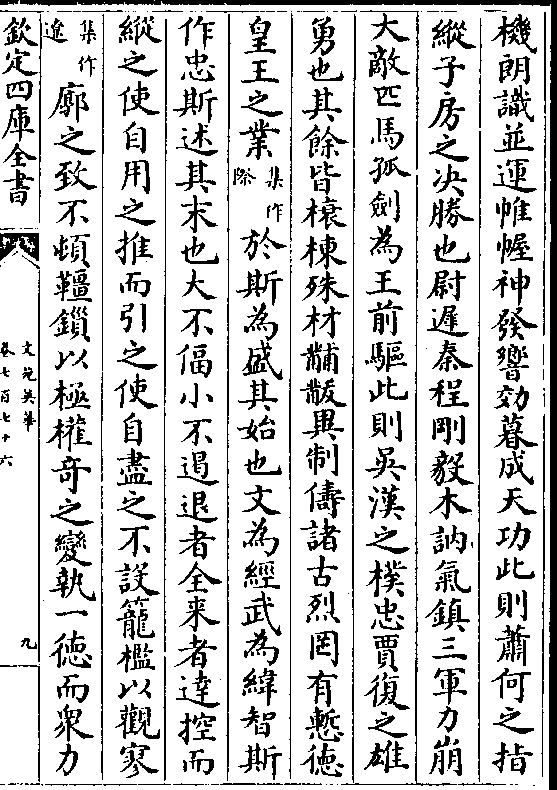 機朗識並運帷幄神發響効暮成天功此則蕭何之指
縱子房之决勝也尉遲秦程剛毅木訥氣鎮三軍力崩
大敵匹馬孤劍為王前驅此則吳漢之樸忠賈復之雄
勇也其餘皆榱棟殊材黼黻異制儔諸古烈罔有慙徳
皇王之業集作際於斯為盛其始也文為經武為緯智斯
作忠斯述其末也大不偪小不遏退者全来者達控而
縱之使自用之推而引之使自盡之不設籠檻以觀寥
集作遼廓之致不頓韁鎖以極權竒之變執一徳而衆力
欽定四庫全書
文苑英華
卷七百七十六
九